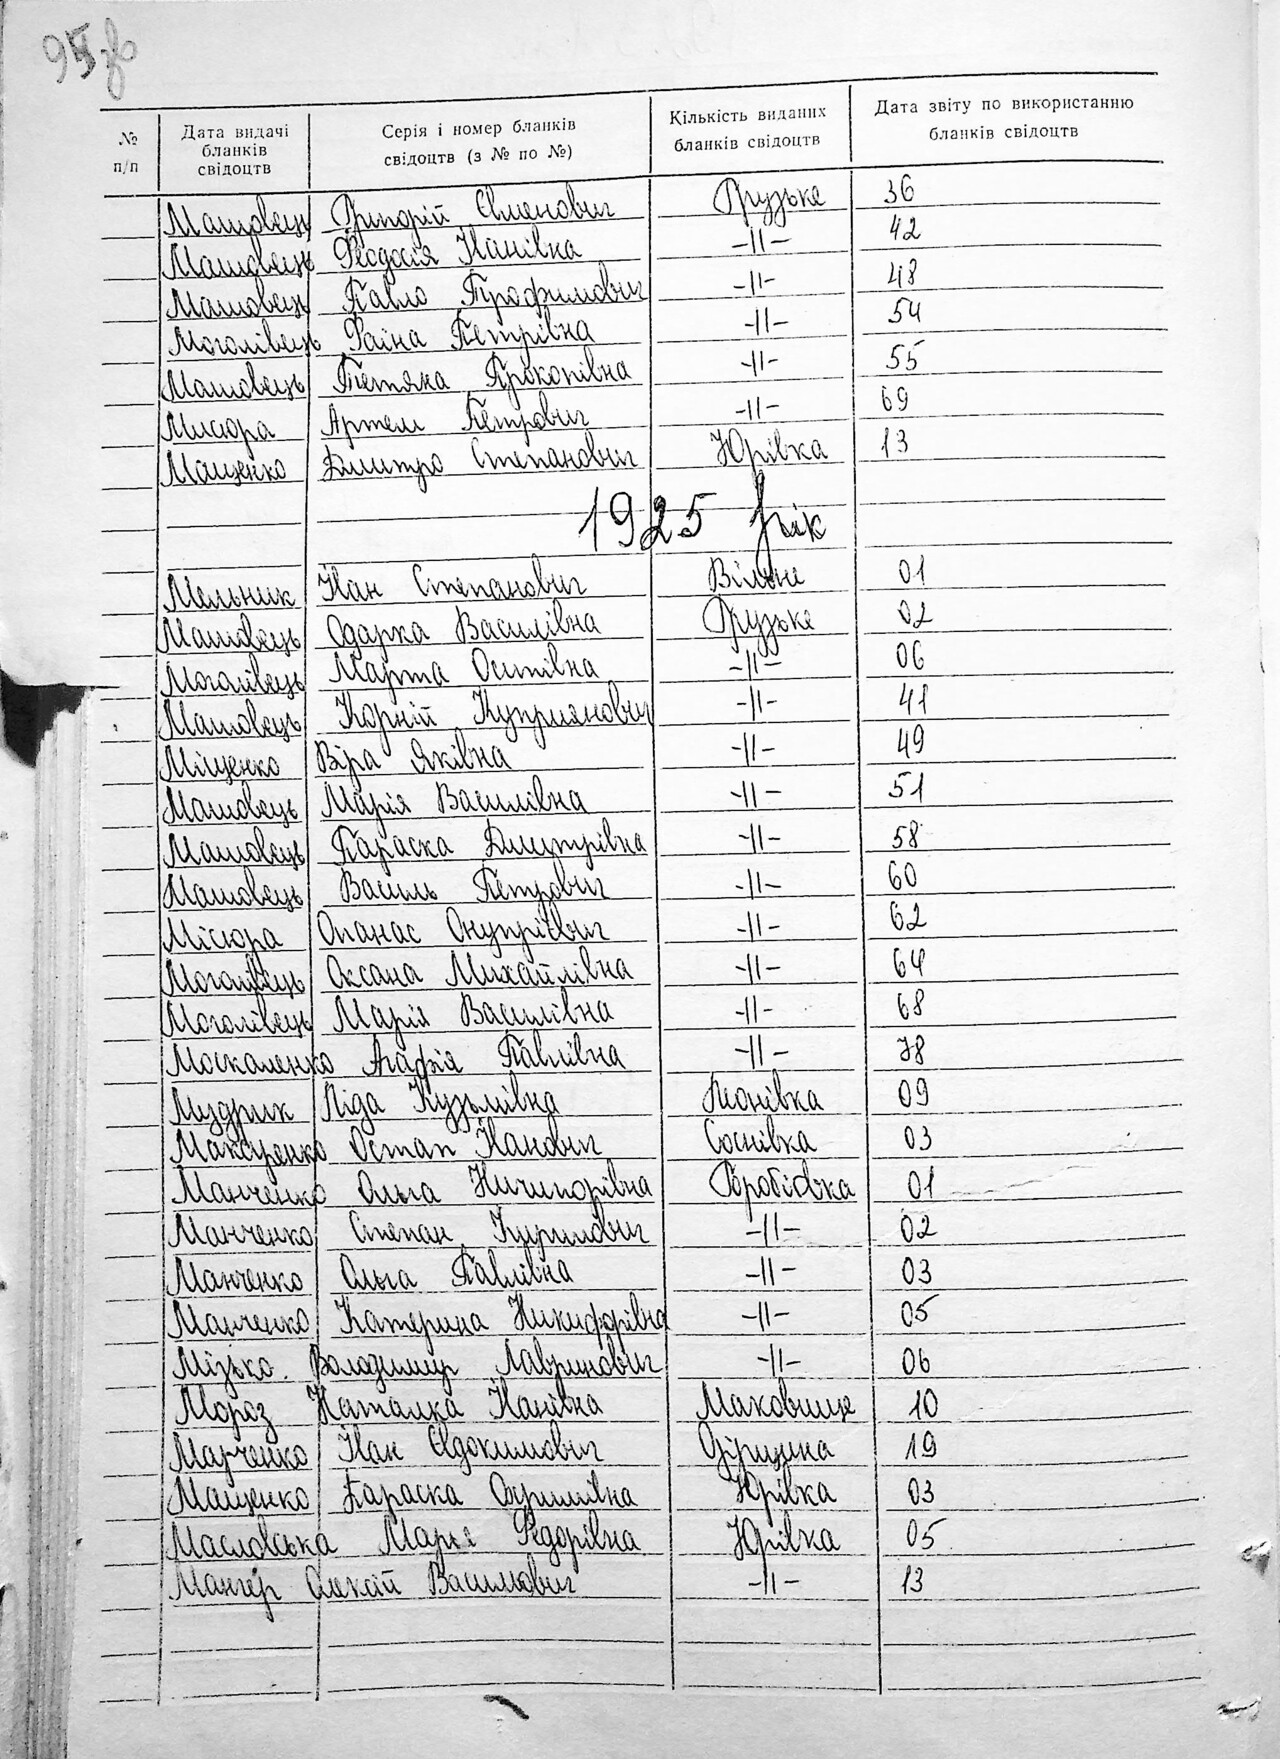 95 зв
№ п/п Дата видачі бланків свідоцтв Серія і номер бланків свідоцтв (з № по №) Кількість виданих бланків свідоцтв Дата звіту по використанню бланків свідоцтв
Машовець Григорій Єменович Грузьке 36
Машовець Феодосія Іванівна -||- 42
Машовець Павло Трофимович -||- 48
Моголівець Фаіна Петрівна -||- 54
Машовець Тетяна Прокопівна -||- 55
Мисюра Артем Петрович -||- 69
Мащенко Дмитро Степанович Юрівка 13
1925 рік
Мельник Іван Степанович Вільне 01
Машовець Одарка Василівна Грузьке 02
Моголівець Марта Осипівна -||- 06
Машовець Корній Купріянович -||- 41
Міщенко Віра Яківна -||- 49
Машовець Марія Василівна -||- 51
Машовець Параска Дмитрівна -||- 58
Машовець Василь Петрович -||- 60
Місюра Опанас Онупрієвич -||- 62
Моголівець Оксана Михайлівна -||- 64
Моголівець Марія Василівна -||- 68
Москаленко Агафія Павлівна -||- 78
Муздрик Ліда Кузьмівна 09
Макаренко Остап Іванович Соснівка 03
Манченко Ольга Ничипорівна 01
Манченко Степан Курилович -||- 02
Манченко Ольга Павлівна -||- 03
Манченко Катерина Никифорівна -||- 05
Мізько Володимир Лавринович -||- 06
Мороз Наталка Іванівна Маковище 10
Марченко Іван Євдокимович 19
Мащенко Параска Охримівна Юрівка 03
Масловська Марія Федорівна Юрівка 05
Василович -||- 13